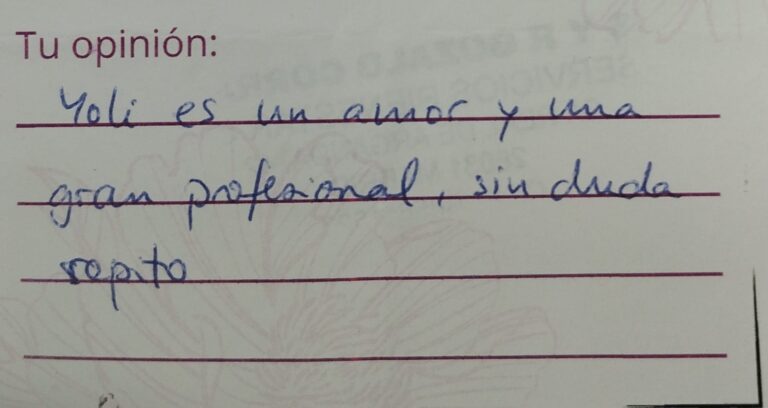 Tu opinión:
Yoli es un amor y una
gran profesional, sin duda
repito